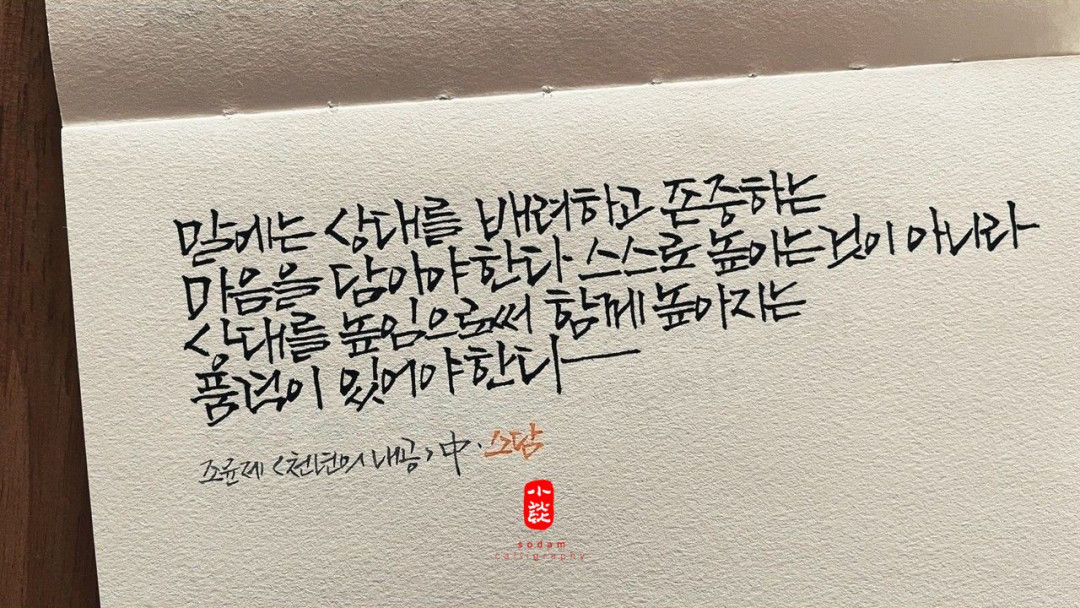 말에는 상대를 배려하고 존중하는
마음을 담아야 한다 스스로 높이는 것이 아니라
상대를 높임으로써 함께 높아지는
품격이 있어야 한다
조윤제 <천년의 내공> 中. 소담
小談
sodam
calligraphy